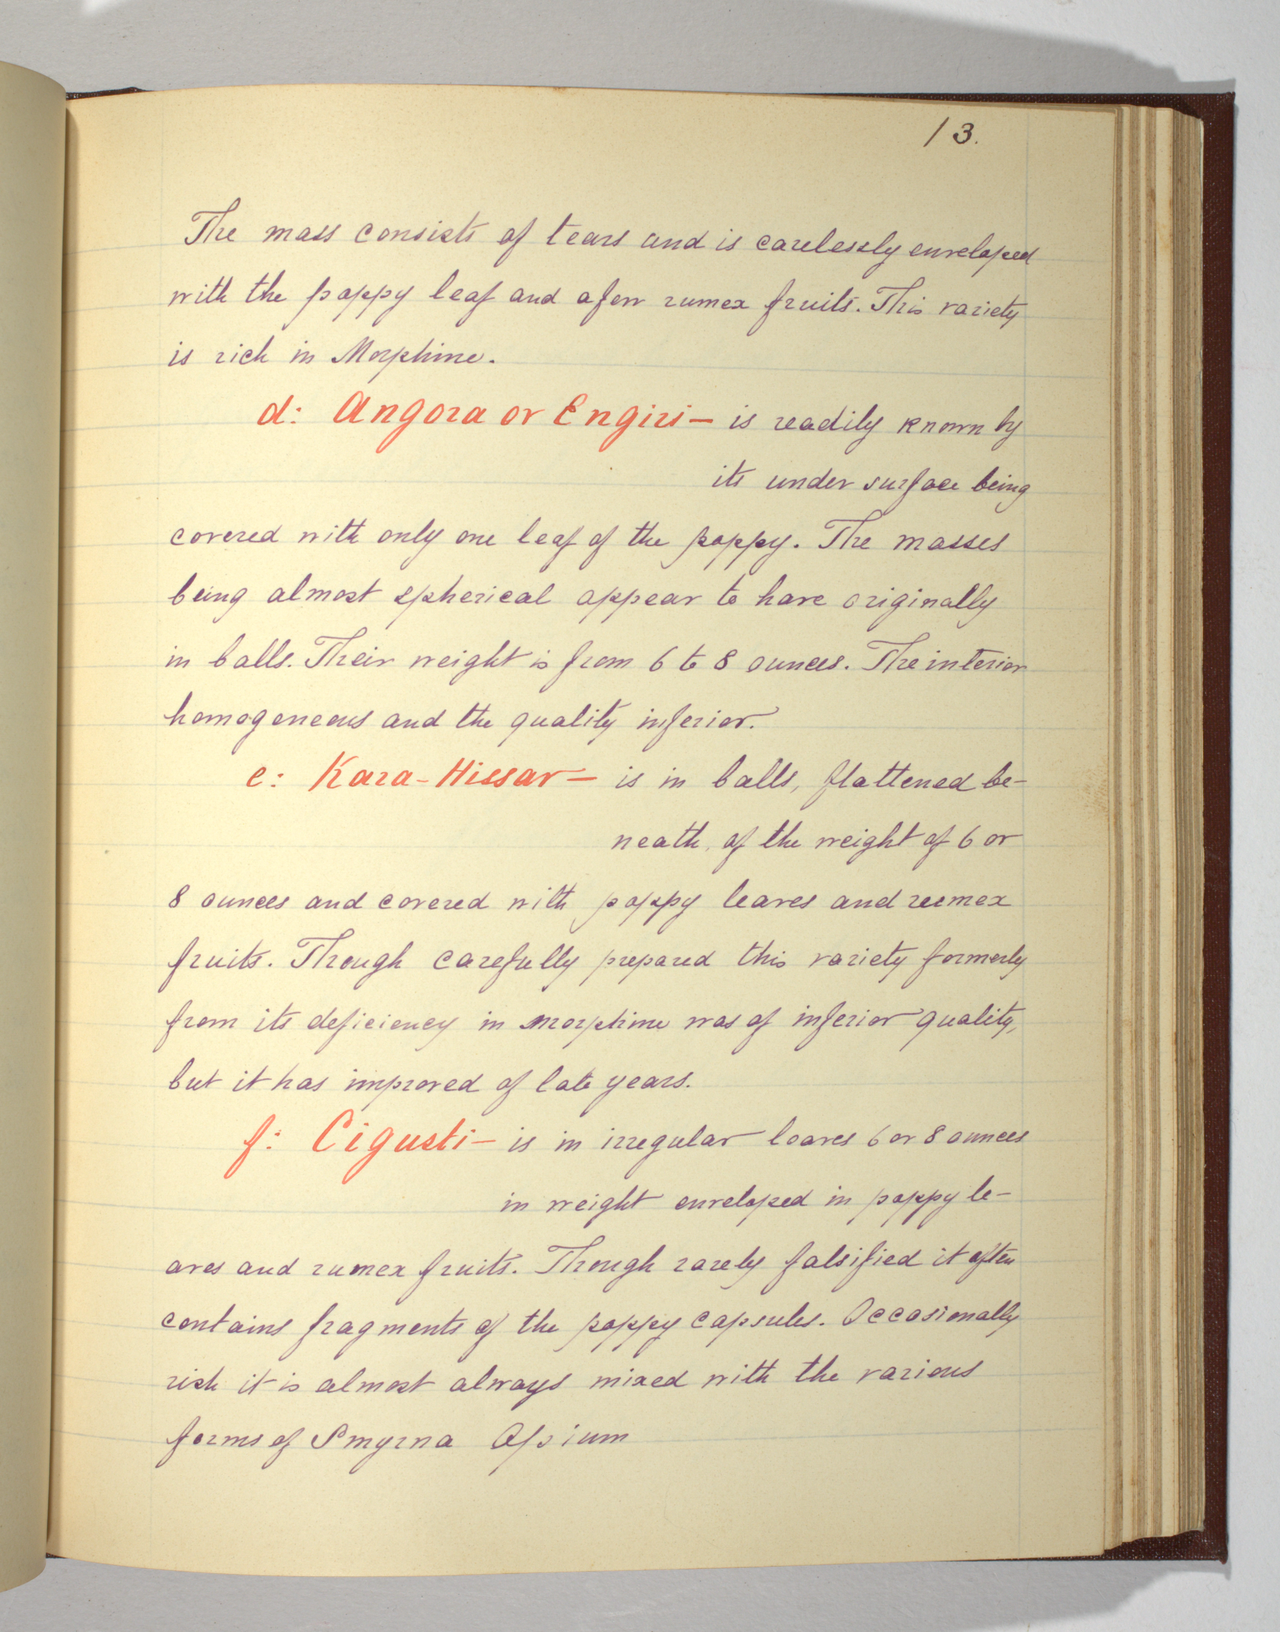 13.
The mass consists of tears and is carelessly enveloped
with the poppy leaf and a few rumex fruits. This variety
is rich in Morphine.
d: Angora or Engiri — is readily known by
its under surface being
covered with only one leaf of the poppy. The masses
being almost spherical appear to have originally
in balls. Their weight is from 6 to 8 ounces. The interior
homogeneous and the quality inferior.
e: Kara-Hissar — is in balls, flattened be-
neath, of the weight of 6 or
8 ounces and covered with poppy leaves and rumex
fruits. Though carefully prepared this variety formerly
from its deficiency in morphine was of inferior quality,
but it has improved of late years.
f: Cigusti — is in irregular loaves 6 or 8 ounces
in weight enveloped in poppy le-
aves and rumex fruits. Though rarely falsified it often
contains fragments of the poppy capsules. Occasionally
rich it is almost always mixed with the various
forms of Smyrna Opium